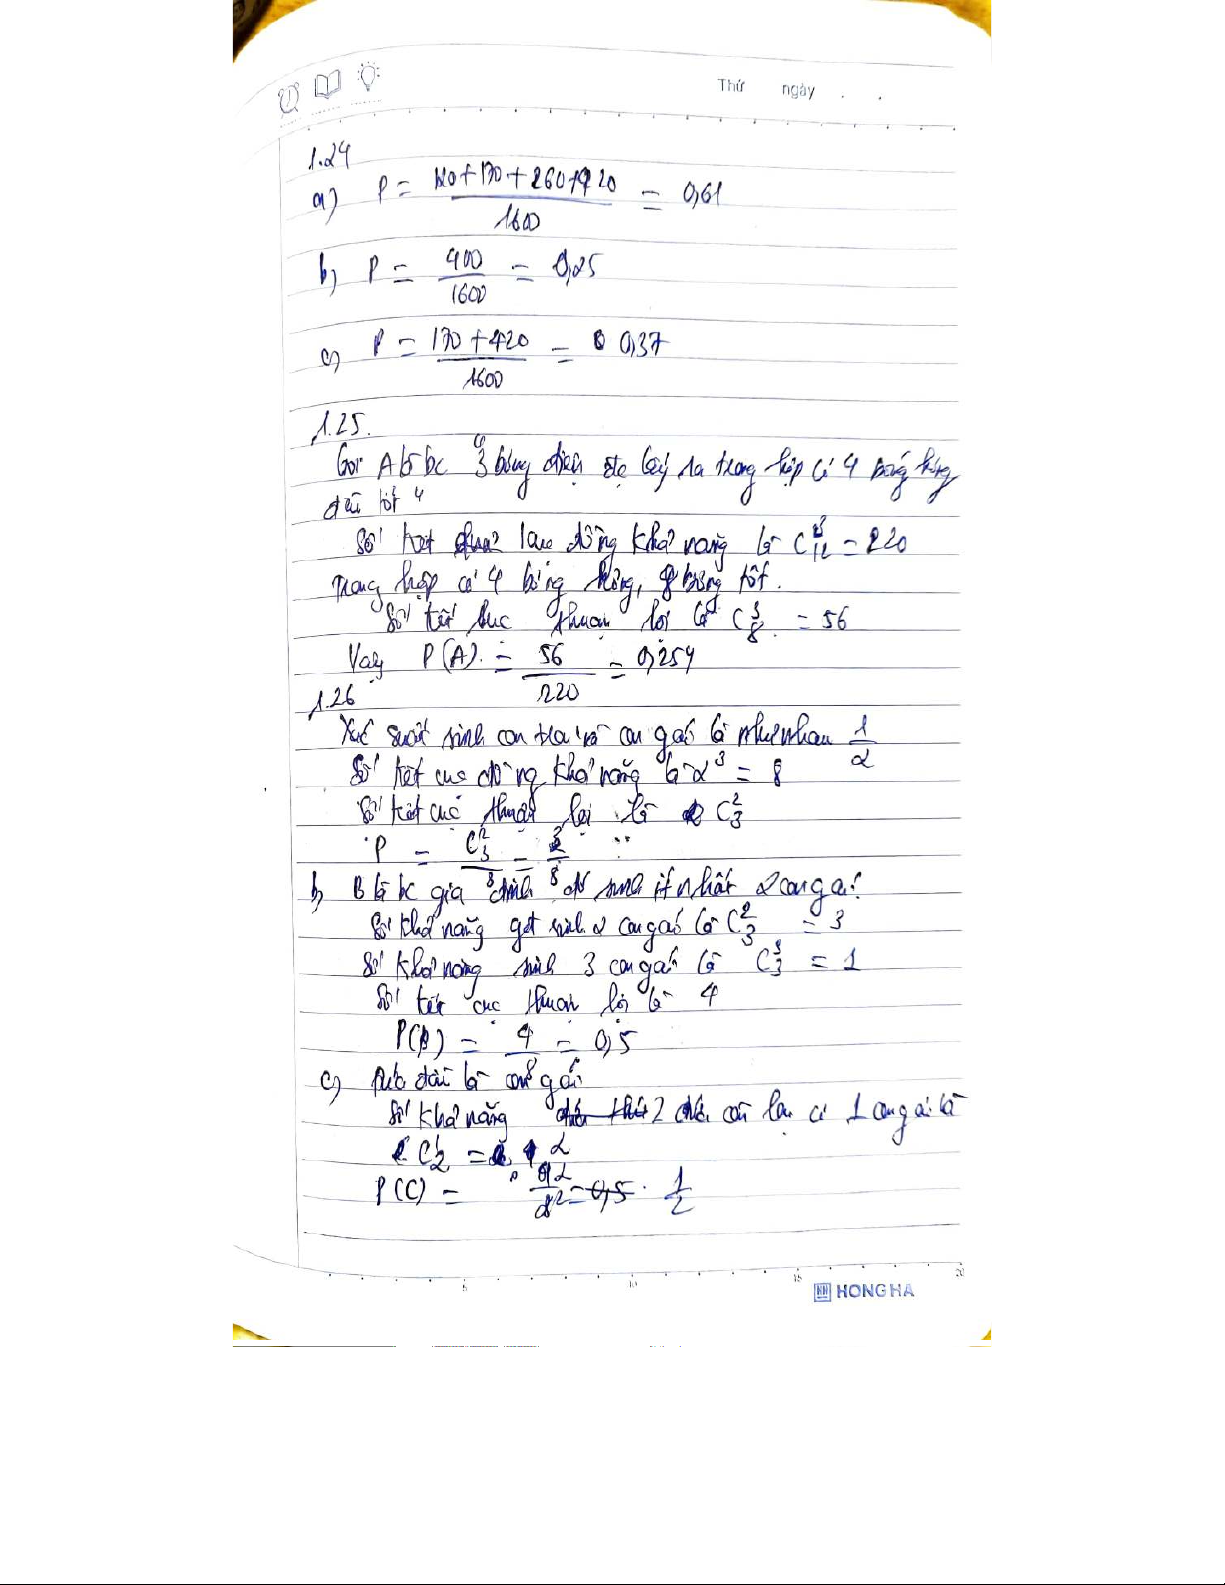 Thứ ngày . .
1.24
a) P = 120+170+260+420 / 1600 = 0,61
b) P = 400 / 1600 = 0,25
c) P = 170+420 / 1600 = 0,37
1.25.
Gọi A là bc "3 bóng điện lấy ra trong hộp có 4 bóng hỏng
đều tốt"
Số kết đồng khả năng là C³₁₂ = 220
Trong hộp có 4 bóng hỏng, 8 bóng tốt.
Số kết cục thuận lợi là C³₈ = 56
Vậy P(A) = 56 / 220 = 0,254
1.26
Xác suất sinh con trai và con gái là như nhau 1/2
Số kết cục đồng khả năng là 2³ = 8
Số kết cục thuận lợi là C²₃
P = C²₃ / 8 = 3 / 8
b) B là bc gia đình đó sinh ít nhất 2 con gái
Số khả năng sinh 2 con gái là C²₃ = 3
Số khả năng sinh 3 con gái là C³₃ = 1
Số kết cục thuận lợi là 4
P(B) = 4 / 8 = 0,5
c) đứa đầu là con gái
Số khả năng 2 đứa còn lại có 1 con gái là
C¹₂ = 2
P(C) = 2 / 2² = 0,5 . 1/2
5 10 15 20
HONG HA